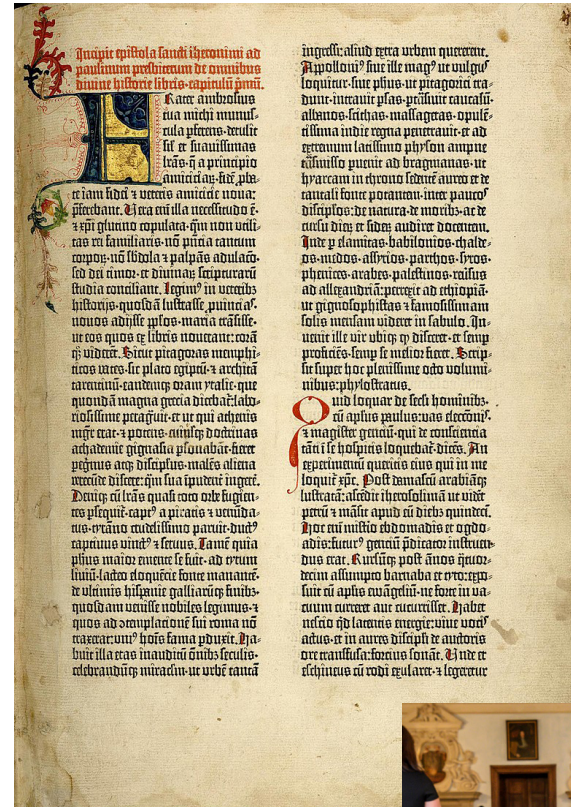 Incipit epistola sancti iheronimi ad
paulinum presbiterum de omnibus
divine historie libris. capitulū pmū.
Frater ambrosius
tua michi munus-
cula pferens. detulit
sił et suavissimas
lr̄as. q̄ a principio
amiciciaȝ. fidē pba-
te iam fidei et veteris amicicie nova:
pferebant. Vera em̄ illa necessitudo ē.
et xp̄i glutino copulata. qm̄ non utili-
tas rei familiaris. nō pn̄cia tantum
corpoȝ. nō sbdola et palpās adulacō.
sed dei timor. et divinaȝ scripturarū
studia conciliant. Legim⁹ in veteribȝ
historijs. quosdā lustrasse puincias.
novos adijsse pp̄los. maria trāsisse.
ut eos quos ex libris noverant: corā
q̄ȝ viderēt. Sicut pitagoras memphi-
ticos vates. sic plato egiptū. et architā
tarentinū. eandemq̄ȝ oram ytalie. que
quondā magna grecia dicebat: labo-
riosissime peragravit. et ut qui athenis
mgr̄ erat. et potens. cuiusq̄ȝ doctrinas
achademie gignasia psonabāt. fieret
peginus atq̄ȝ discipulus. malēs aliena
verecūde discere: q̄m sua īpudent̄ ingerē.
Deniq̄ȝ cū lr̄as quasi toto orbe fugien-
tes pseqt̄. capt⁹ a piratis et venūda-
tus. tyrāno crudelissimo paruit. duct⁹
captivus vinct⁹ et servus. Tamē quia
ph̄us maior emente se fuit. ad tytum
liviū. lacteo eloquēcie fonte manantē.
de ultimis hispanie galliarūq̄ȝ finibȝ.
quosdam venisse nobiles legimus. et
quos ad 9templacionē sui roma nō
traxerat: uni⁹ hoīs fama pduxit. Ha-
buit illa etas inauditū oībȝ seculis.
celebrandūq̄ȝ miraculm̄. ut urbē tantā
ingressi: aliud extra urbem quererent.
Appolloni⁹ sive ille mag⁹ ut vulgus
loquitur. sive ph̄us. ut pitagorici tra-
dunt. intravit psas. ptrāsivit caucasū.
albanos. scithas. massagetas. opulē-
tissima indie regna penetravit. et ad
extremum latissimo physon ampne
trāsmisso puenit ad bragmanas. ut
hyarcam in throno sedentē aureo et de
tantali fonte potantem. inter paucos
discipłos. de natura. de moribȝ. ac de
cursu dieȝ et sideȝ audiret docentem.
Inde p elamitas. babilonios. chalde-
os. medos. assyrios. parthos. syros.
phenices. arabes. palestinos. reūsus
ad allexandriā: perrexit ad ethiopiā.
ut gignosophistas et famosissimam
solis mensam videret in sabulo. In-
venit ille vir ubiq̄ȝ qd̄ disceret. et semp
proficiēs. semp se melior fieret. Scrip-
sit super hoc plenissime octo volumi-
nibus: phylostratus.
Quid loquar de secłi hominibȝ.
cū apłus paulus: vas eleccōis.
et magister genciū. qui de consciencia
tāti ī se hospitis loquebat̄. dicēs. An
experimentū queritis eius qui in me
loquit̄ xp̄c. Post damascū arabiāq̄ȝ
lustratā: ascēdit iherosolimā ut vidēt
petrū et māsit apud eū diebȝ quindeci.
Hoc em̄ mistio ebdomadis et ogdo-
adis: futur⁹ genciū pdicator instruen-
dus erat. Rursūq̄ȝ post ānos q̄tuor-
decim assumpto barnaba et tyto: expo-
suit cū apłis evāgeliū. ne forte in va-
cuum curreret aut cucurrisset. Habet
nescio qd̄ latentis energie: vive vocis
actus. et in aures discipłi de auctoris
ore transfusa: forcius sonāt. Unde et
eschineus cū rodi exularet. et legeretur